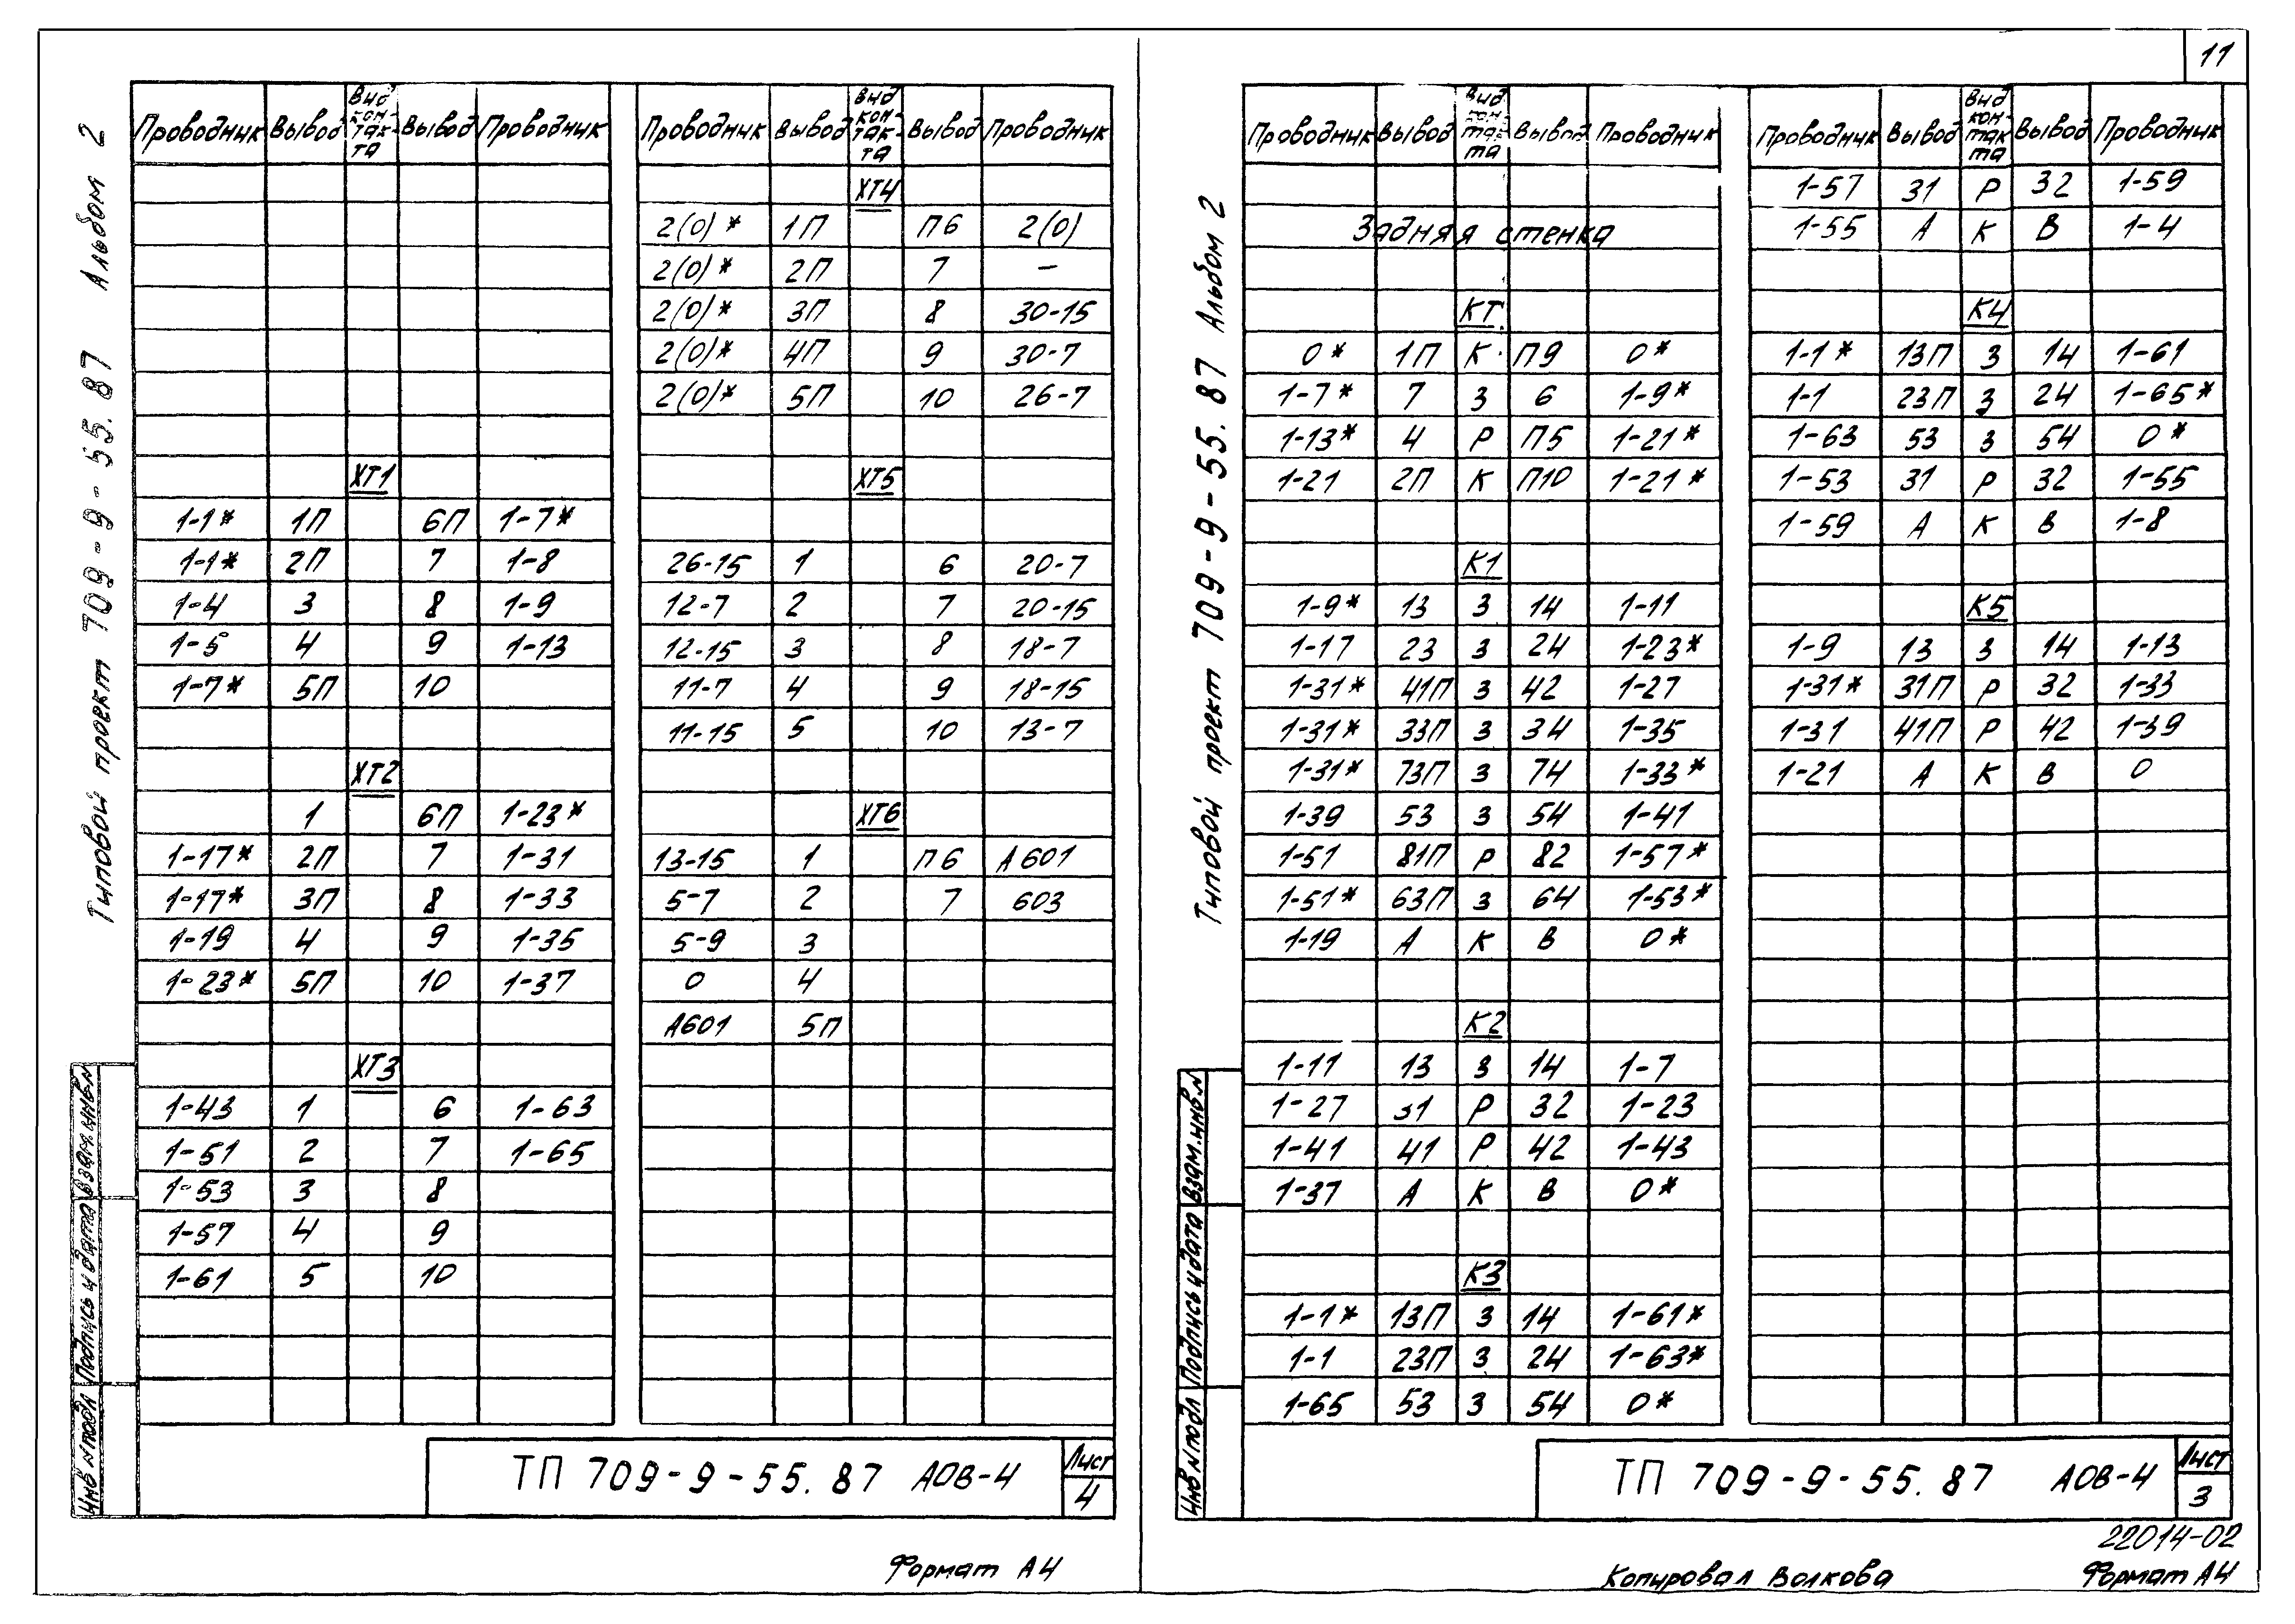 11
Типовой проект 709-9-55.87 Альбом 2
Проводник Вывод Вид контакта Вывод Проводник
ХТ1
1-1* 1П 6П 1-7*
1-1* 2П 7 1-8
1-4 3 8 1-9
1-5 4 9 1-13
1-7* 5П 10
ХТ2
1 6П 1-23*
1-17* 2П 7 1-31
1-17* 3П 8 1-33
1-19 4 9 1-35
1-23* 5П 10 1-37
ХТ3
1-43 1 6 1-63
1-51 2 7 1-65
1-53 3 8
1-57 4 9
1-61 5 10
Проводник Вывод Вид контакта Вывод Проводник
ХТ4
2(0)* 1П П6 2(0)
2(0)* 2П 7 –
2(0)* 3П 8 30-15
2(0)* 4П 9 30-7
2(0)* 5П 10 26-7
ХТ5
26-15 1 6 20-7
12-7 2 7 20-15
12-15 3 8 18-7
11-7 4 9 18-15
11-15 5 10 13-7
ХТ6
13-15 1 П6 А601
5-7 2 7 603
5-9 3
0 4
А601 5П
Инв N подл Подпись и дата Взам.инв.N
ТП 709-9-55.87 АОВ-4
Лист
4
Формат А4
Типовой проект 709-9-55.87 Альбом 2
Проводник Вывод Вид контакта Вывод Проводник
Задняя стенка
КТ
0* 1П К П9 0*
1-7* 7 З 6 1-9*
1-13* 4 Р П5 1-21*
1-21 2П К П10 1-21*
К1
1-9* 13 З 14 1-11
1-17 23 З 24 1-23*
1-31* 41П З 42 1-27
1-31* 33П З 34 1-35
1-31* 73П З 74 1-33*
1-39 53 З 54 1-41
1-51 81П Р 82 1-57*
1-51* 63П З 64 1-53*
1-19 А К В 0*
К2
1-11 13 З 14 1-7
1-27 31 Р 32 1-23
1-41 41 Р 42 1-43
1-37 А К В 0*
К3
1-1* 13П З 14 1-61*
1-1 23П З 24 1-63*
1-65 53 З 54 0*
Проводник Вывод Вид контакта Вывод Проводник
1-57 31 Р 32 1-59
1-55 А К В 1-4
К4
1-1* 13П З 14 1-61
1-1 23П З 24 1-65*
1-63 53 З 54 0*
1-53 31 Р 32 1-55
1-59 А К В 1-8
К5
1-9 13 З 14 1-13
1-31* 31П Р 32 1-33
1-31 41П Р 42 1-39
1-21 А К В 0
Инв N подл Подпись и дата Взам.инв.N
ТП 709-9-55.87 АОВ-4
Лист
3
22014-02
Копировал Волкова Формат А4